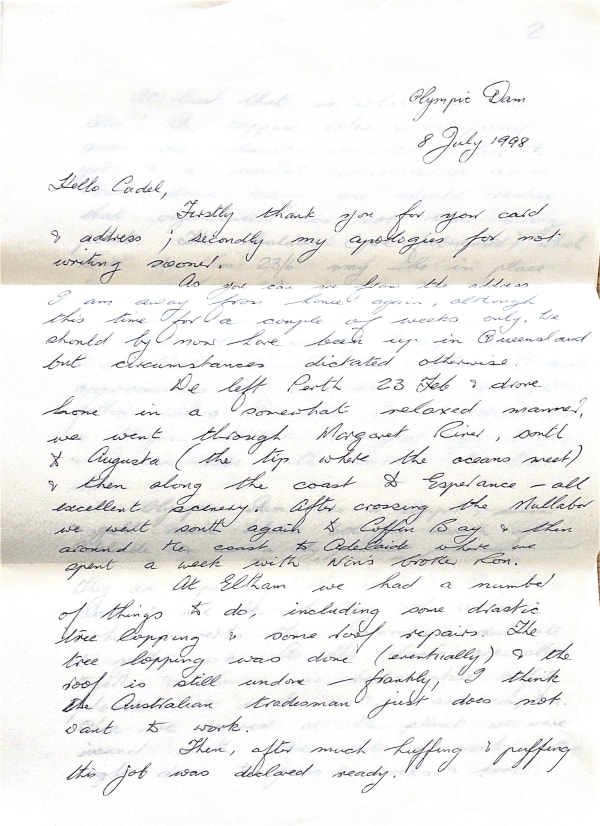 2
Olympic Dam
8 July 1998
Hello Cadel,
Firstly thank you for your card
& address ; secondly my apologies for not
writing sooner.
As you can see from the address
I am away from home again, although
this time for a couple of weeks only. We
should by now have been up in Queensland
but circumstances dictated otherwise.
We left Perth 23 Feb & drove
home in a somewhat relaxed manner,
we went through Margaret River, south
to Augusta (the tip where the oceans meet)
& then along the coast to Esperance – all
excellent scenery. After crossing the Nullabor
we went south again to Coffin Bay & then
around the coast to Adelaide where we
spent a week with Nin's brother Ron.
At Eltham we had a number
of things to do, including some drastic
tree lopping & some roof repairs. The
tree lopping was done (eventually) & the
roof is still undone – frankly, I think
the Australian tradesman just does not
want to work.
Then, after much huffing & puffing
this job was declared ready.